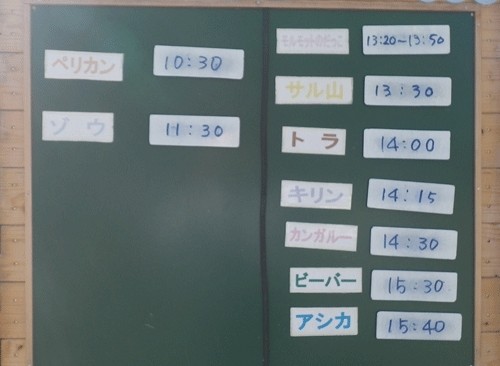 ペリカン 10:30
ゾウ 11:30
モルモットのだっこ 13:20-13:50
サル山 13:30
トラ 14:00
キリン 14:15
カンガルー 14:30
ビーバー 15:30
アシカ 15:40